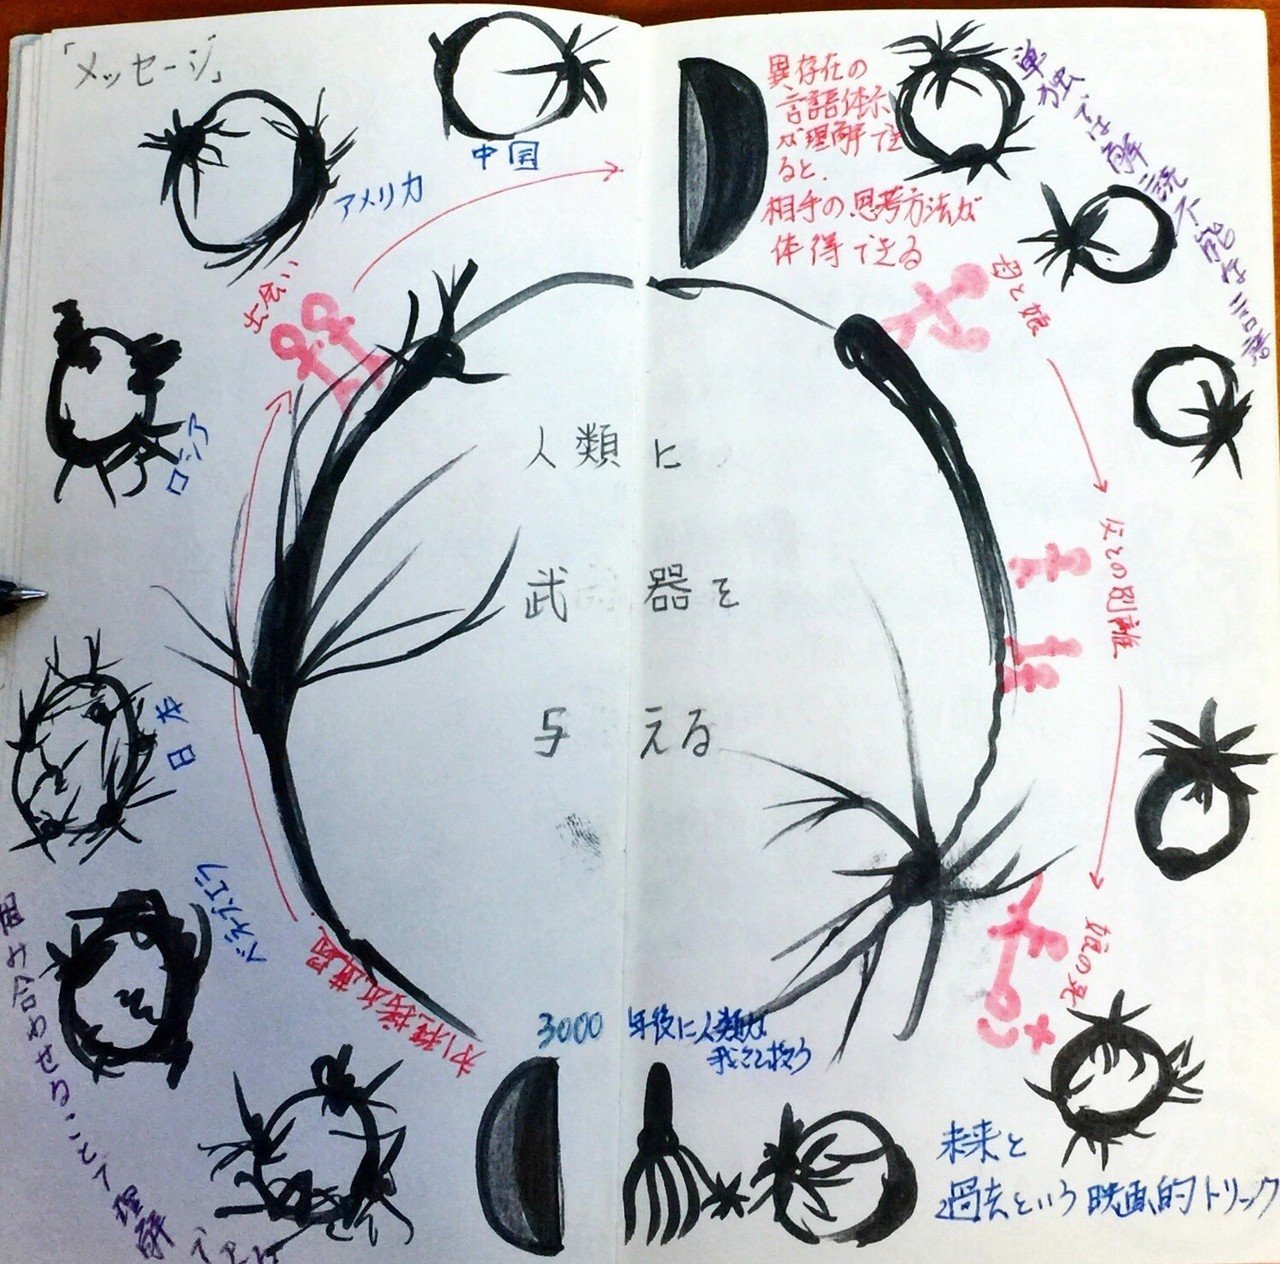 「メッセージ」
中国
アメリカ
異存在の
言語体系
が理解でき
ると、
相手の思考方法が
体得できる
単独では解読不能な言語
出会い
母と娘
ロシア
人類に
父との別離
武器を
日本
与える
ベネズエラ
娘の死
3000年後に人類が
我々を救う
組み合わせることで理解
未来と
過去という映画的トリック